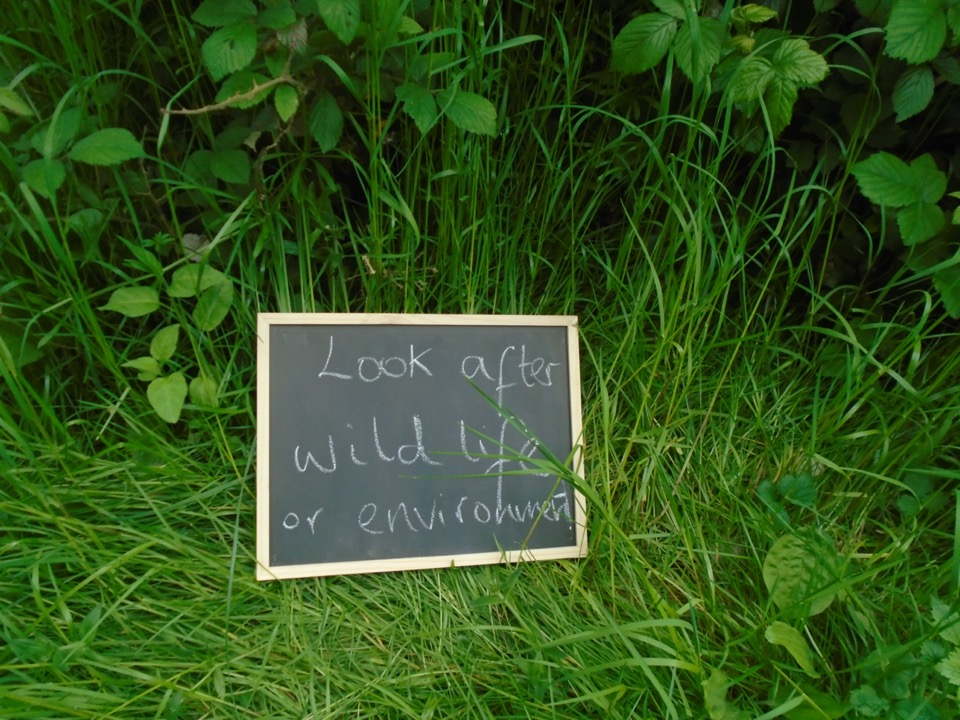 Look after
wild life
or environment